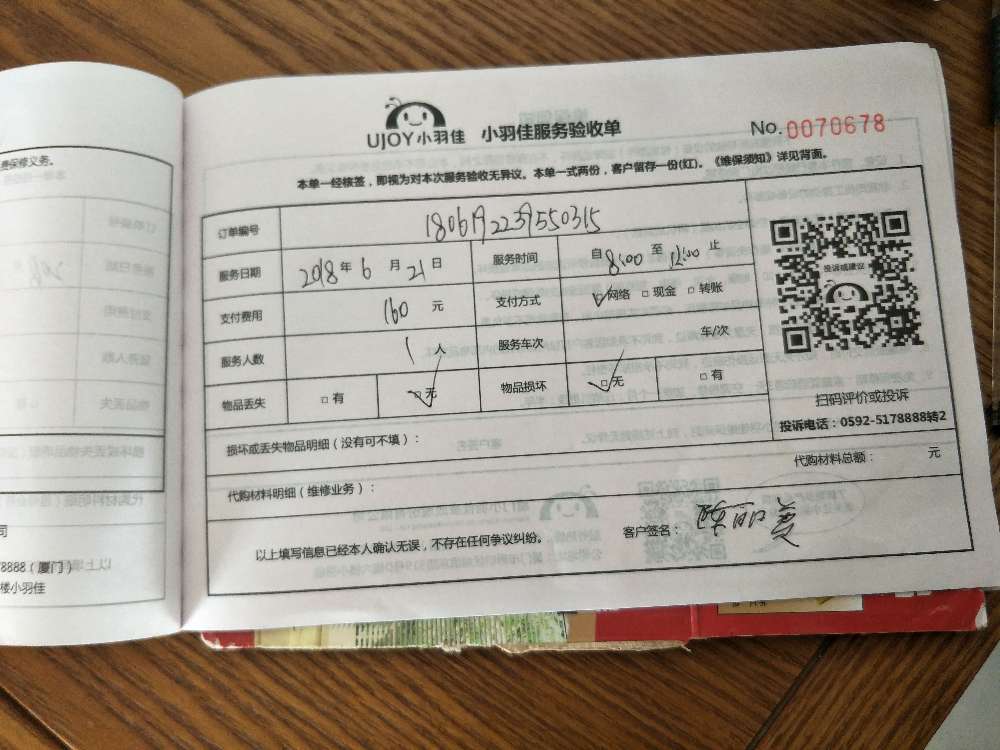 费保修义务。
司
78888（厦门）
楼小羽佳
UJOY小羽佳 小羽佳服务验收单 No.0070678
本单一经核签，即视为对本次服务验收无异议。本单一式两份，客户留存一份(红)。《维保须知》详见背面。
订单编号 1806192239550315
服务日期 2018年6月21日 服务时间 自8:00至12:00止
支付费用 160元 支付方式 网络 现金 转账
服务人数 1人 服务车次 车/次
物品丢失 有 无 物品损坏 无 有
投诉或建议
扫码评价或投诉
投诉电话：0592-5178888转2
损坏或丢失物品明细（没有可不填）：
代购材料明细（维修业务）： 代购材料总额： 元
以上填写信息已经本人确认无误，不存在任何争议纠纷。 客户签名：陈丽美